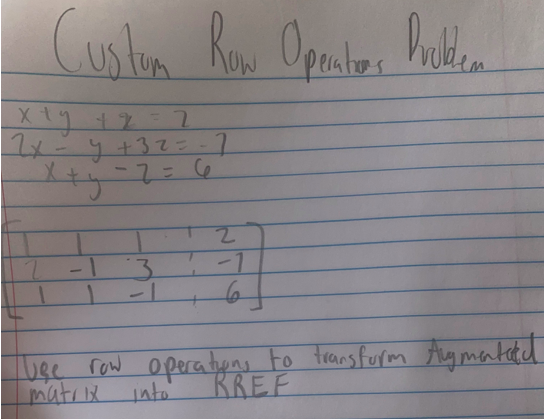 Custom Row Operations Problem
x + y + z = 2
2x - y + 3z = -7
x + y - z = 6
1 1 1 ¦ 2
2 -1 3 ¦ -7
1 1 -1 ¦ 6
Use row operations to transform Augmented
matrix into RREF